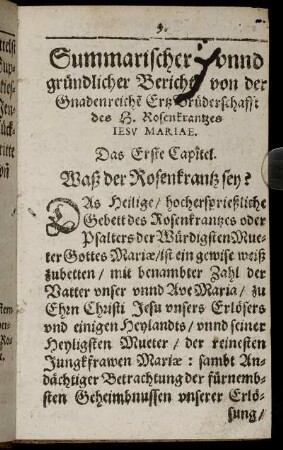 Summarischer vnnd
gründlicher Bericht von der
Gnadenreichē Ertz Brüderschafft
des H. Rosenkrantzes
IESV MARIAE.
Das Erste Capitel.
Waß der Rosenkrantz sey?
DAs Heilige / hochersprießliche
Gebett des Rosenkrantzes oder
Psalters der Würdigsten Mue-
ter Gottes Mariæ / ist ein gewise weiß
zubetten / mit benambter Zahl der
Vatter vnser vnnd Ave Maria / zu
Ehrn Christi Jesu vnsers Erlösers
vnd einigen Heylandts / vnnd seiner
Heyligsten Mueter / der reinesten
Jungkfrawen Mariæ : sambt An-
dächtiger Betrachtung der fürnemb-
sten Geheimbnussen vnserer Erlö-
sung /